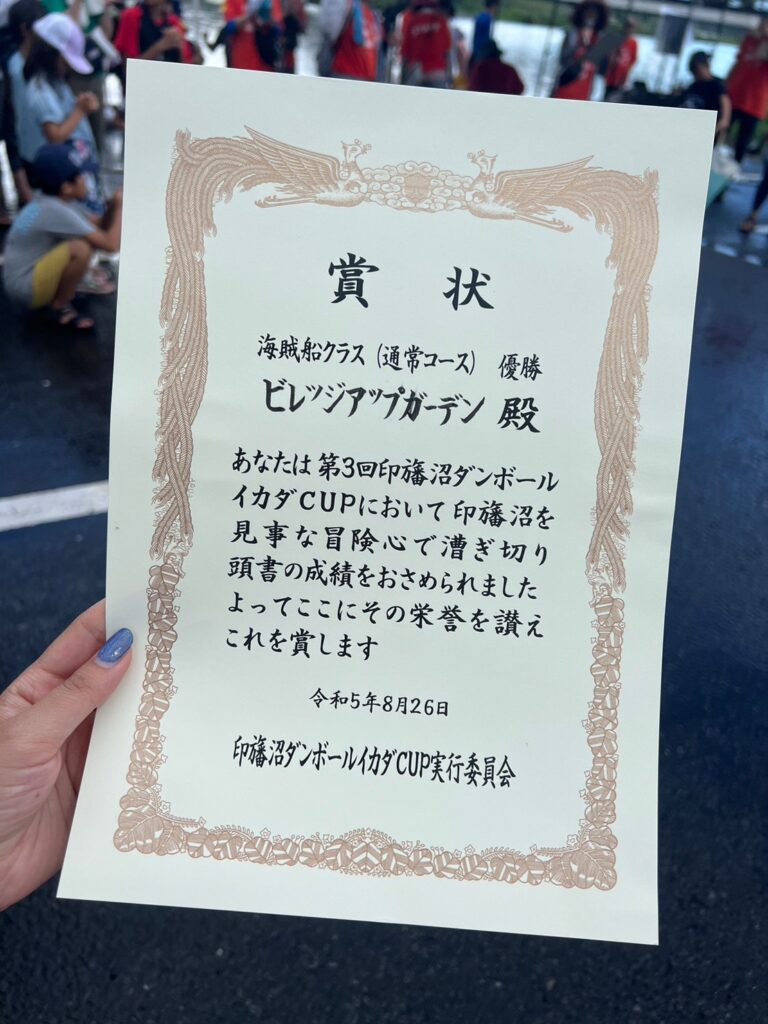 賞状
海賊船クラス（通常コース） 優勝
ビレッジアップガーデン 殿
あなたは第3回印旛沼ダンボール
イカダCUPにおいて印旛沼を
見事な冒険心で漕ぎ切り
頭書の成績をおさめられました
よってここにその栄誉を讃え
これを賞します
令和5年8月26日
印旛沼ダンボールイカダCUP実行委員会